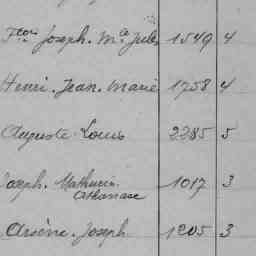 Fçois Joseph. Mie Jules 1549 4
Henri. Jean. Marie 1758 4
Auguste Louis 2285 5
Joseph. Mathurin. 1017 3
Athanase
Arsène. Joseph 1205 3